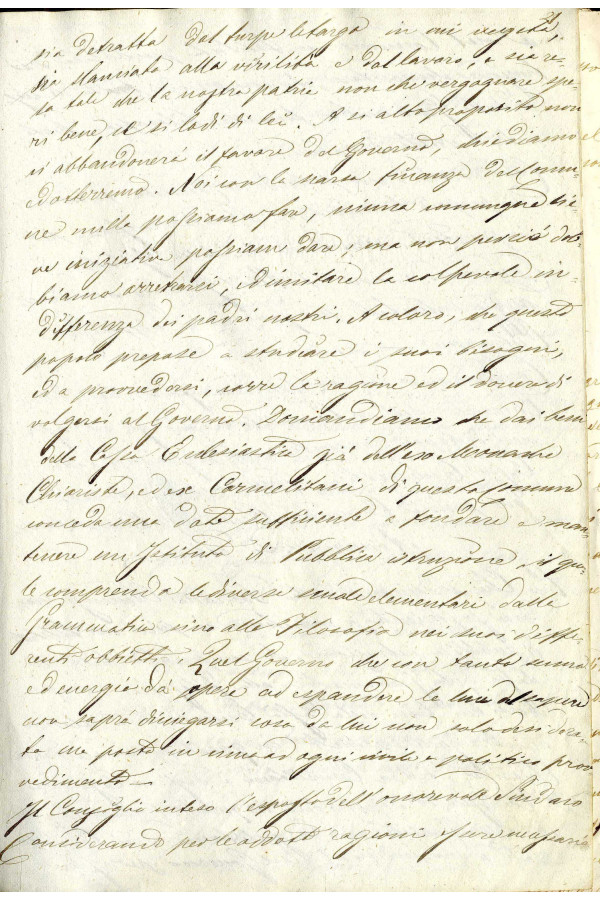 sia detratta dal turpe letargo in cui vegeta.
sia slanciata alla virilità e dal lavoro, e sia re-
sa tale che la nostra patria non che vergognare spe-
ri bene, e si lodi di lei. A sì alto proposito non
ci abbandonerà il favore del Governo, chiediamo
ed otterremo. Noi con la scarsa finanza del Comu-
ne nulla possiamo fare, niuna comunque lie-
ve iniziativa possiam dare, ma non perciò dob-
biamo arretrarci, ed imitare la colpevole in-
differenza dei padri nostri. A coloro, che questo
popolo prepose a studiare i suoi bisogni,
ed a provvederli, corre la ragione ed il dovere di
volgersi al Governo. Domandiamo che dai beni
della Cassa Ecclesiastica già dell'ex Monache
Chiariste, ed ex Carmelitani di questo Comune
conceda una dote sufficiente a fondare e man-
tenere un Istituto di Pubblica istruzione, il qua-
le comprenda le diverse scuole elementari dalla
Grammatica sino alla Filosofia nei suoi diffe-
renti obbietti. Quel Governo che con tanto senno
ed energia dà opera ad espandere la luce del sapere
non saprà diniegarsi cosa da lui non solo desidera-
ta ma posta in cima ad ogni civile e politico prov
vedimento—
Il Consiglio inteso l'esposto dell'onorevole Sindaco
Considerando per le addotte ragioni essere necessaria